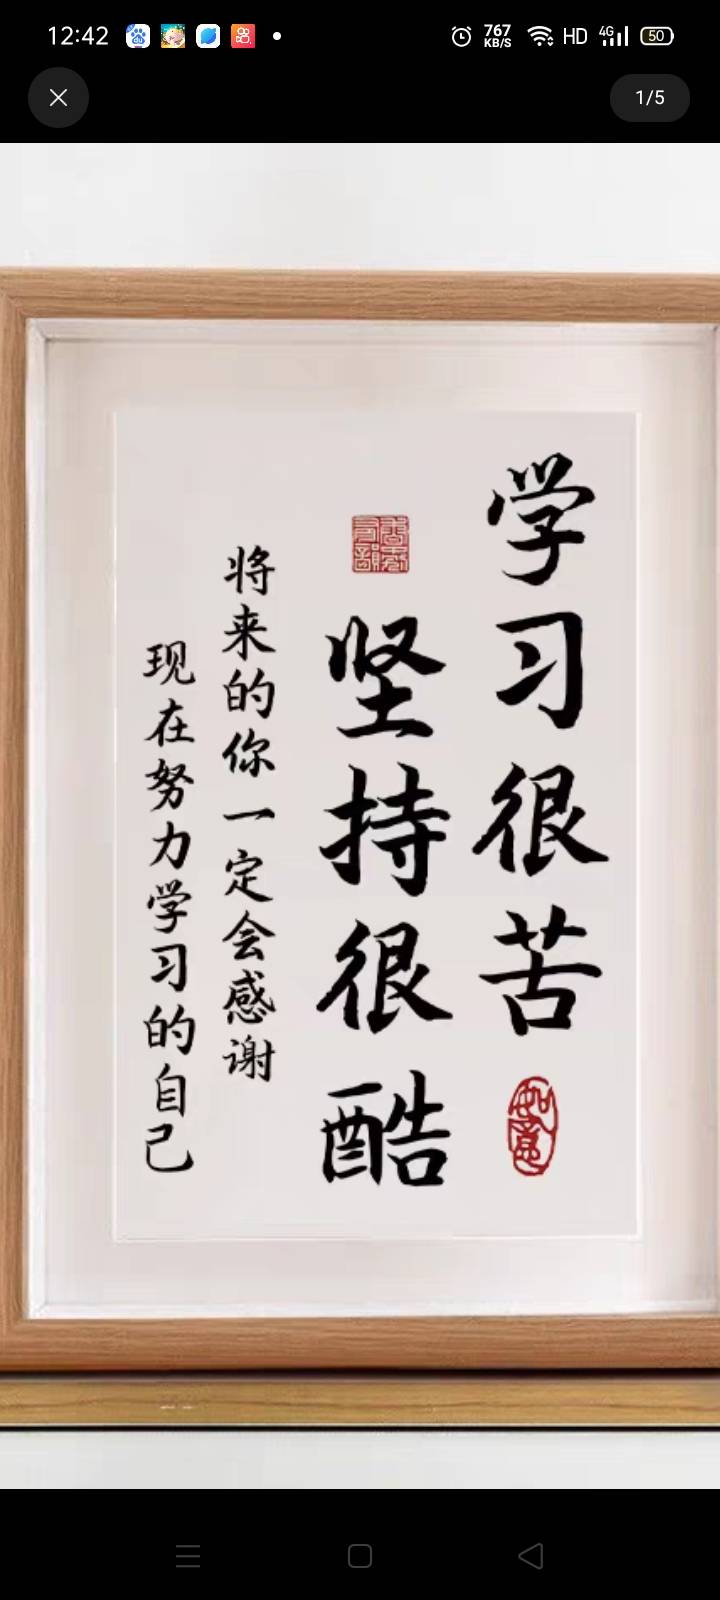 12:42
767
KB/S
HD
4G
50
1/5
学习很苦
如意
坚持很酷
将来的你一定会感谢
现在努力学习的自己